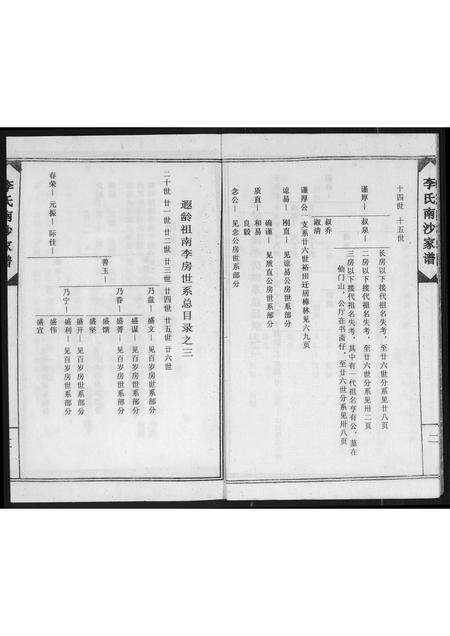 李氏南沙家谱
十四世 十五世
长房以下接代祖名失考，至廿六世分系见廿八页
谨厚—叔泉—二房以下接代祖名失考，至廿六世分系见卅二页
三房以下接代祖名失考，其中有一代祖名亨有公，墓在
仙门山，公厅在书斋仔，至廿六世分系见卅八页
叔乔
叔清
谨厚公一支系廿六世裕田迁居樟林见六九页
谅易—刚直—见谅易公房世系部分
确谨—见质直公房世系部分
质直—和易
良毅
念公—见念公房世系部分
遐龄祖南李房世系总目录之三
二十世 廿一世 廿二世 廿三世 廿四世 廿五世 廿六世
乃盘—盛文—见百岁房世系部分
盛谋—见百岁房世系部分
乃眷—盛菁—见百岁房世系部分
盛馔
善玉—
盛坚
盛开—见百岁房世系部分
乃宁—盛利—见百岁房世系部分
盛伟
盛宜
春荣—元振—际佳—
李氏南沙家谱